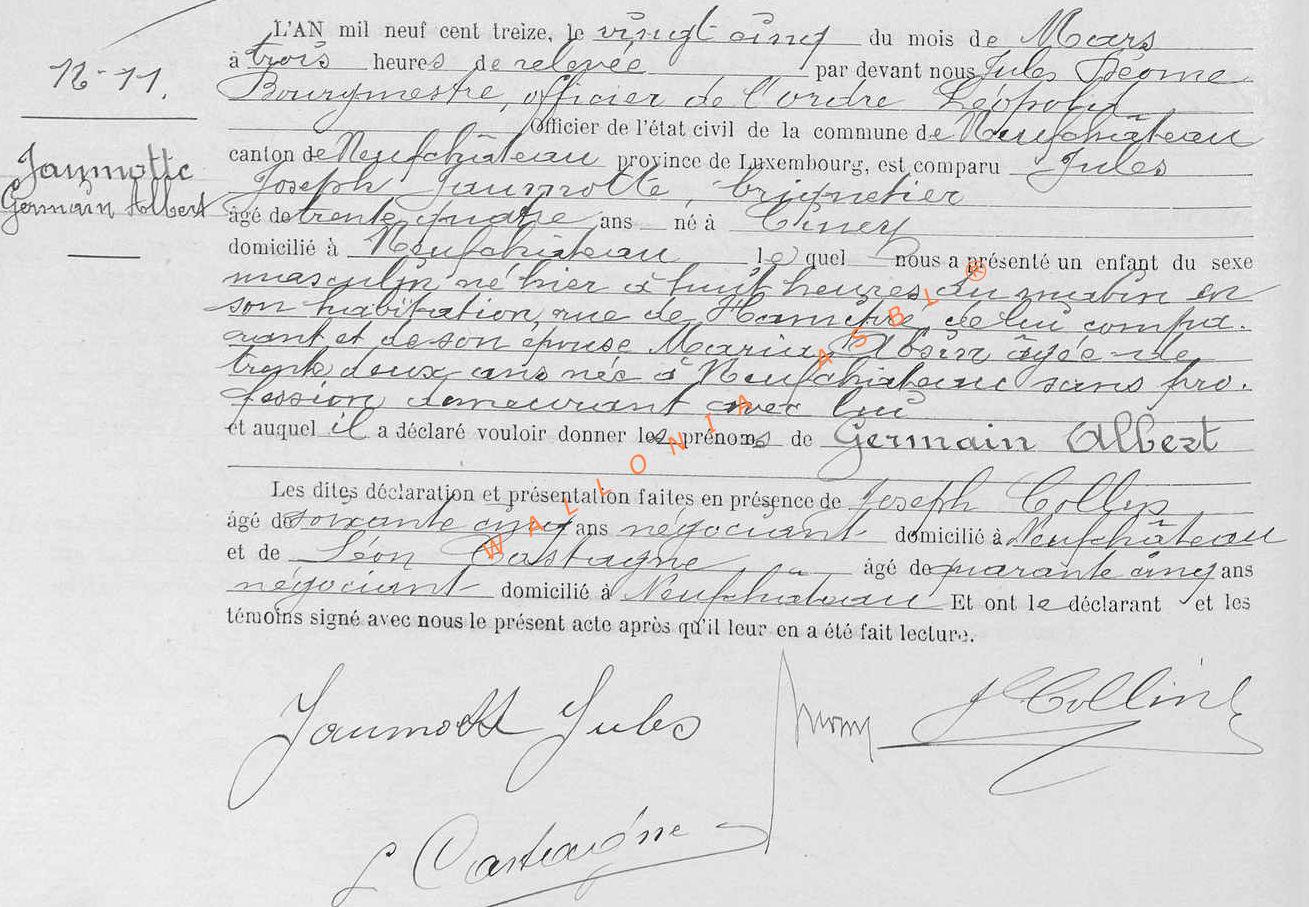 L'AN mil neuf cent treize, le vingt cinq du mois de Mars
à trois heures de relevée par devant nous Jules
Bourgmestre, officier de l'ordre Léopold
Officier de l'état civil de la commune de Neufchâteau
canton de Neufchâteau province de Luxembourg, est comparu Jules
Joseph Jaumotte, briquetier
âgé de trente quatre ans né à Ciney
domicilié à Neufchâteau lequel nous a présenté un enfant du sexe
masculin né hier à huit heures du matin en
son habitation, rue de Hamipré, de lui compa-
rant et de son épouse Maria âgée de
trente deux ans née à Neufchâteau sans pro-
fession demeurant avec lui
et auquel il a déclaré vouloir donner les prénoms de Germain Albert
Les dites déclaration et présentation faites en présence de Joseph Collin
âgé de soixante cinq ans négociant domicilié à Neufchâteau
et de Léon Castagne, âgé de quarante cinq ans
négociant domicilié à Neufchâteau Et ont le déclarant et les
témoins signé avec nous le présent acte après qu'il leur en a été fait lecture.
12-11.
Jaumotte
Germain Albert
WALLONIA ASBL ®
Jaumotte Jules
J Collin
L Castaigne